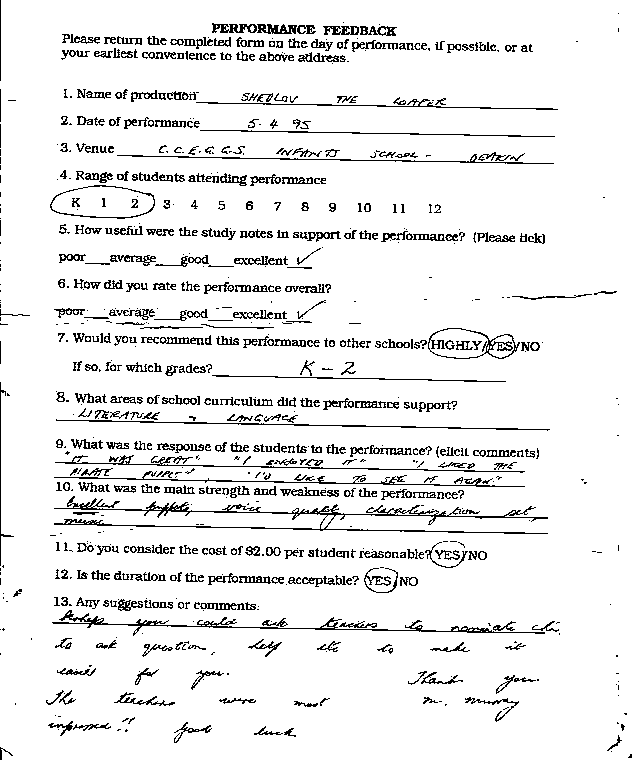 PERFORMANCE FEEDBACK
Please return the completed form on the day of performance, if possible, or at
your earliest convenience to the above address.
1. Name of production SHEDLOV THE LOAFER
2. Date of performance 5. 4 95
3. Venue C.C.E.G.G.S. INFANTS SCHOOL - DEAKIN
4. Range of students attending performance
K 1 2 3 4 5 6 7 8 9 10 11 12
5. How useful were the study notes in support of the performance? (Please tick)
poor average good excellent ✓
6. How did you rate the performance overall?
poor average good excellent ✓
7. Would you recommend this performance to other schools? HIGHLY/YES/NO
If so, for which grades? K - 2
8. What areas of school curriculum did the performance support?
LITERATURE LANGUAGE
9. What was the response of the students to the performance? (elicit comments)
"IT WAS GREAT" "I ENJOYED IT" "I LIKED THE
PIRATE PUPPET", "I'D LIKE TO SEE IT AGAIN."
10. What was the main strength and weakness of the performance?
Excellent puppets, voice quality, characterization set,
music
11. Do you consider the cost of $2.00 per student reasonable? YES/NO
12. Is the duration of the performance acceptable? YES/NO
13. Any suggestions or comments:
Perhaps you could ask teachers to nominate
to ask question, to make it
easier for you. Thank you
The teachers were most m. murray
impressed!! Good luck